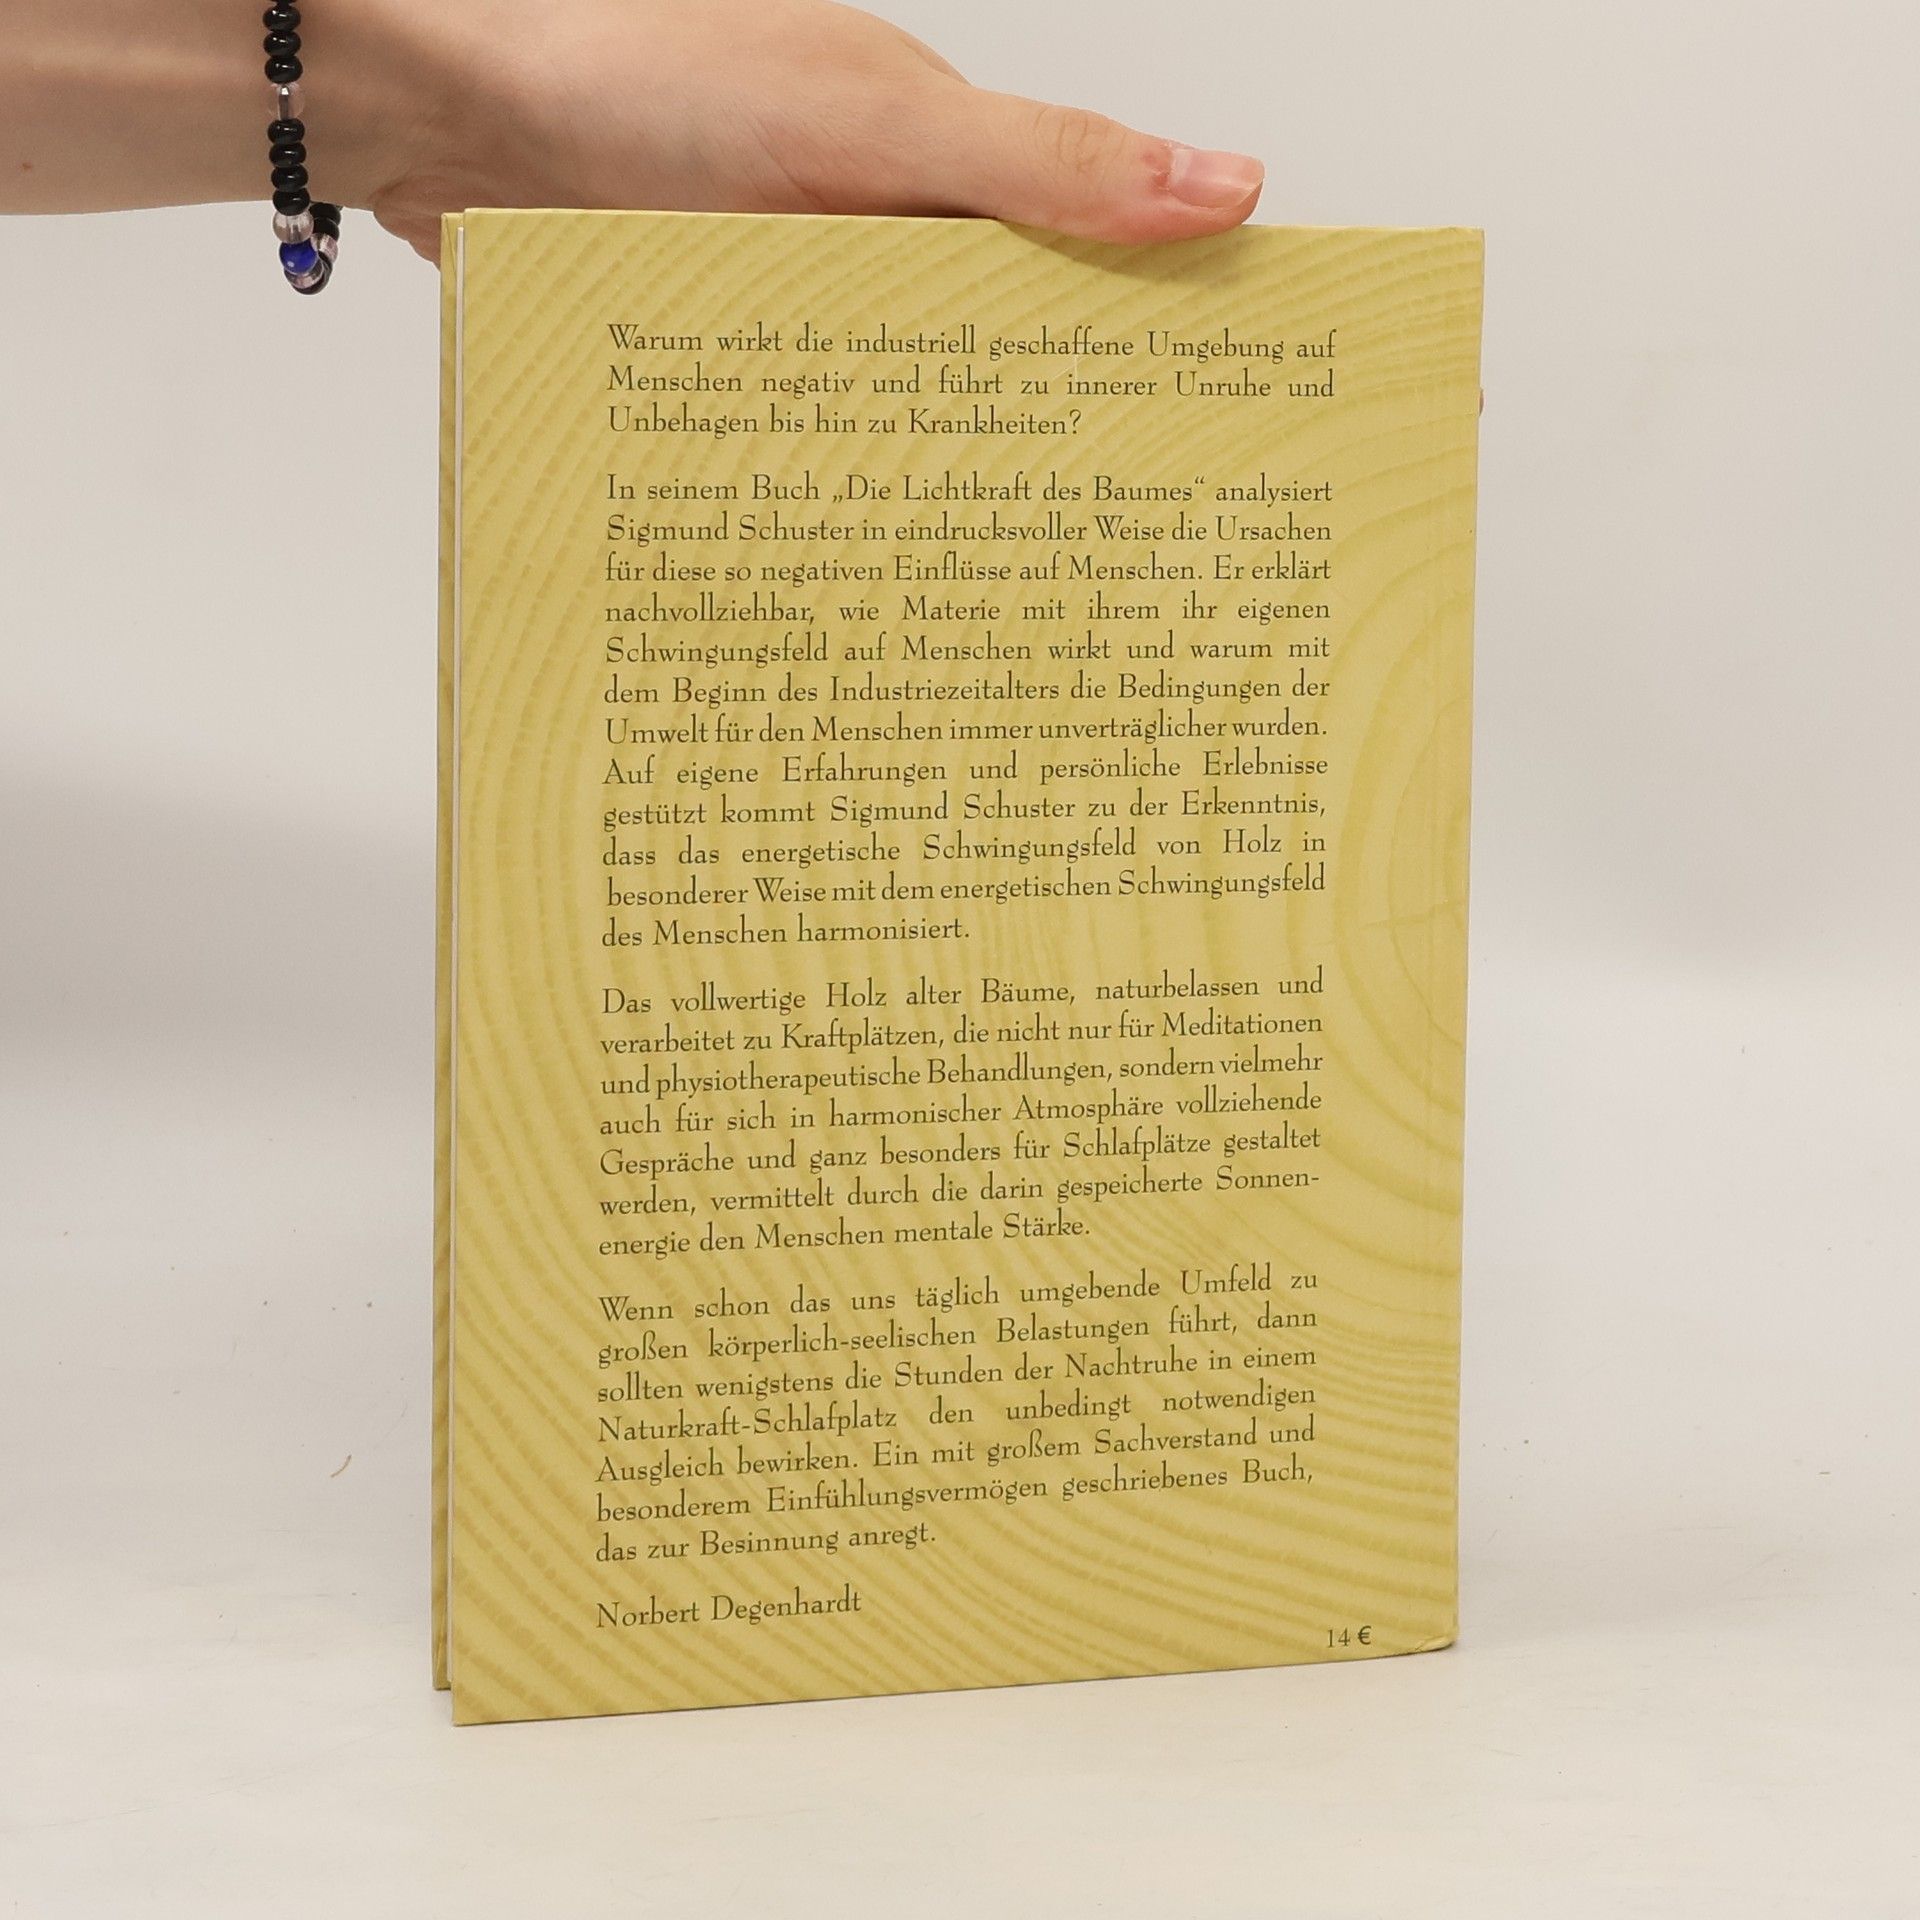 Warum wirkt die industriell geschaffene Umgebung auf
Menschen negativ und führt zu innerer Unruhe und
Unbehagen bis hin zu Krankheiten?
In seinem Buch „Die Lichtkraft des Baumes“ analysiert
Sigmund Schuster in eindrucksvoller Weise die Ursachen
für diese so negativen Einflüsse auf Menschen. Er erklärt
nachvollziehbar, wie Materie mit ihrem ihr eigenen
Schwingungsfeld auf Menschen wirkt und warum mit
dem Beginn des Industriezeitalters die Bedingungen der
Umwelt für den Menschen immer unverträglicher wurden.
Auf eigene Erfahrungen und persönliche Erlebnisse
gestützt kommt Sigmund Schuster zu der Erkenntnis,
dass das energetische Schwingungsfeld von Holz in
besonderer Weise mit dem energetischen Schwingungsfeld
des Menschen harmonisiert.
Das vollwertige Holz alter Bäume, naturbelassen und
verarbeitet zu Kraftplätzen, die nicht nur für Meditationen
und physiotherapeutische Behandlungen, sondern vielmehr
auch für sich in harmonischer Atmosphäre vollziehende
Gespräche und ganz besonders für Schlafplätze gestaltet
werden, vermittelt durch die darin gespeicherte Sonnen-
energie den Menschen mentale Stärke.
Wenn schon das uns täglich umgebende Umfeld zu
großen körperlich-seelischen Belastungen führt, dann
sollten wenigstens die Stunden der Nachtruhe in einem
Naturkraft-Schlafplatz den unbedingt notwendigen
Ausgleich bewirken. Ein mit großem Sachverstand und
besonderem Einfühlungsvermögen geschriebenes Buch,
das zur Besinnung anregt.
Norbert Degenhardt
14 €